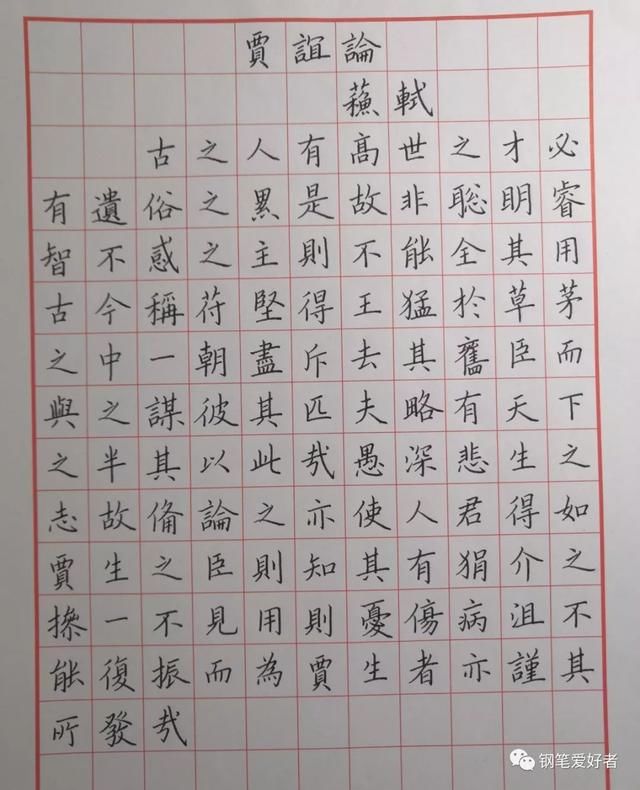 賈誼論
蘇軾
古之人有高世之才必
有遺俗之累是故非聡明睿
智不惑之主則不能全其用
古今稱苻堅得王猛於草茅
之中一朝盡斥去其舊臣而
與之謀彼其匹夫略有天下
之半其以此哉愚深悲生之
志故備論之亦使人君得如
賈生之臣則知其有狷介之
操一不見用則憂傷病沮不
能復振而為賈生者亦謹其
所發哉
钢笔爱好者